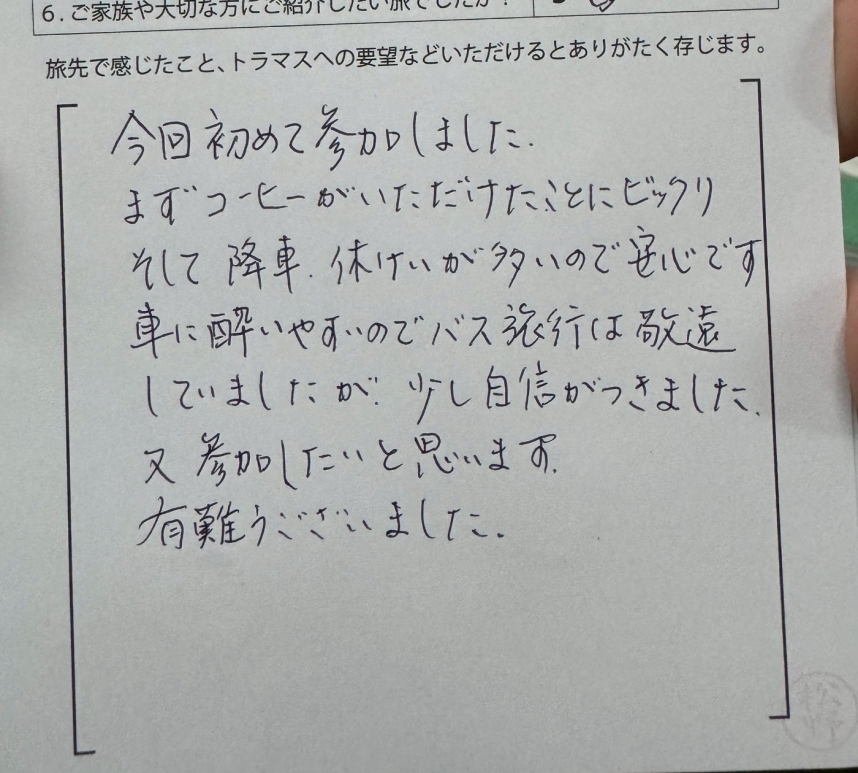 6. ご家族や大切な方にご紹介したい旅でしたか?
旅先で感じたこと、トラマスへの要望などいただけるとありがたく存じます。
今回初めて参加しました.
まずコーヒーがいただけたことにビックリ
そして降車.休けいが多いので安心です
車に酔いやすいのでバス旅行は敬遠
していましたが.少し自信がつきました.
又参加したいと思います.
有難うございました.